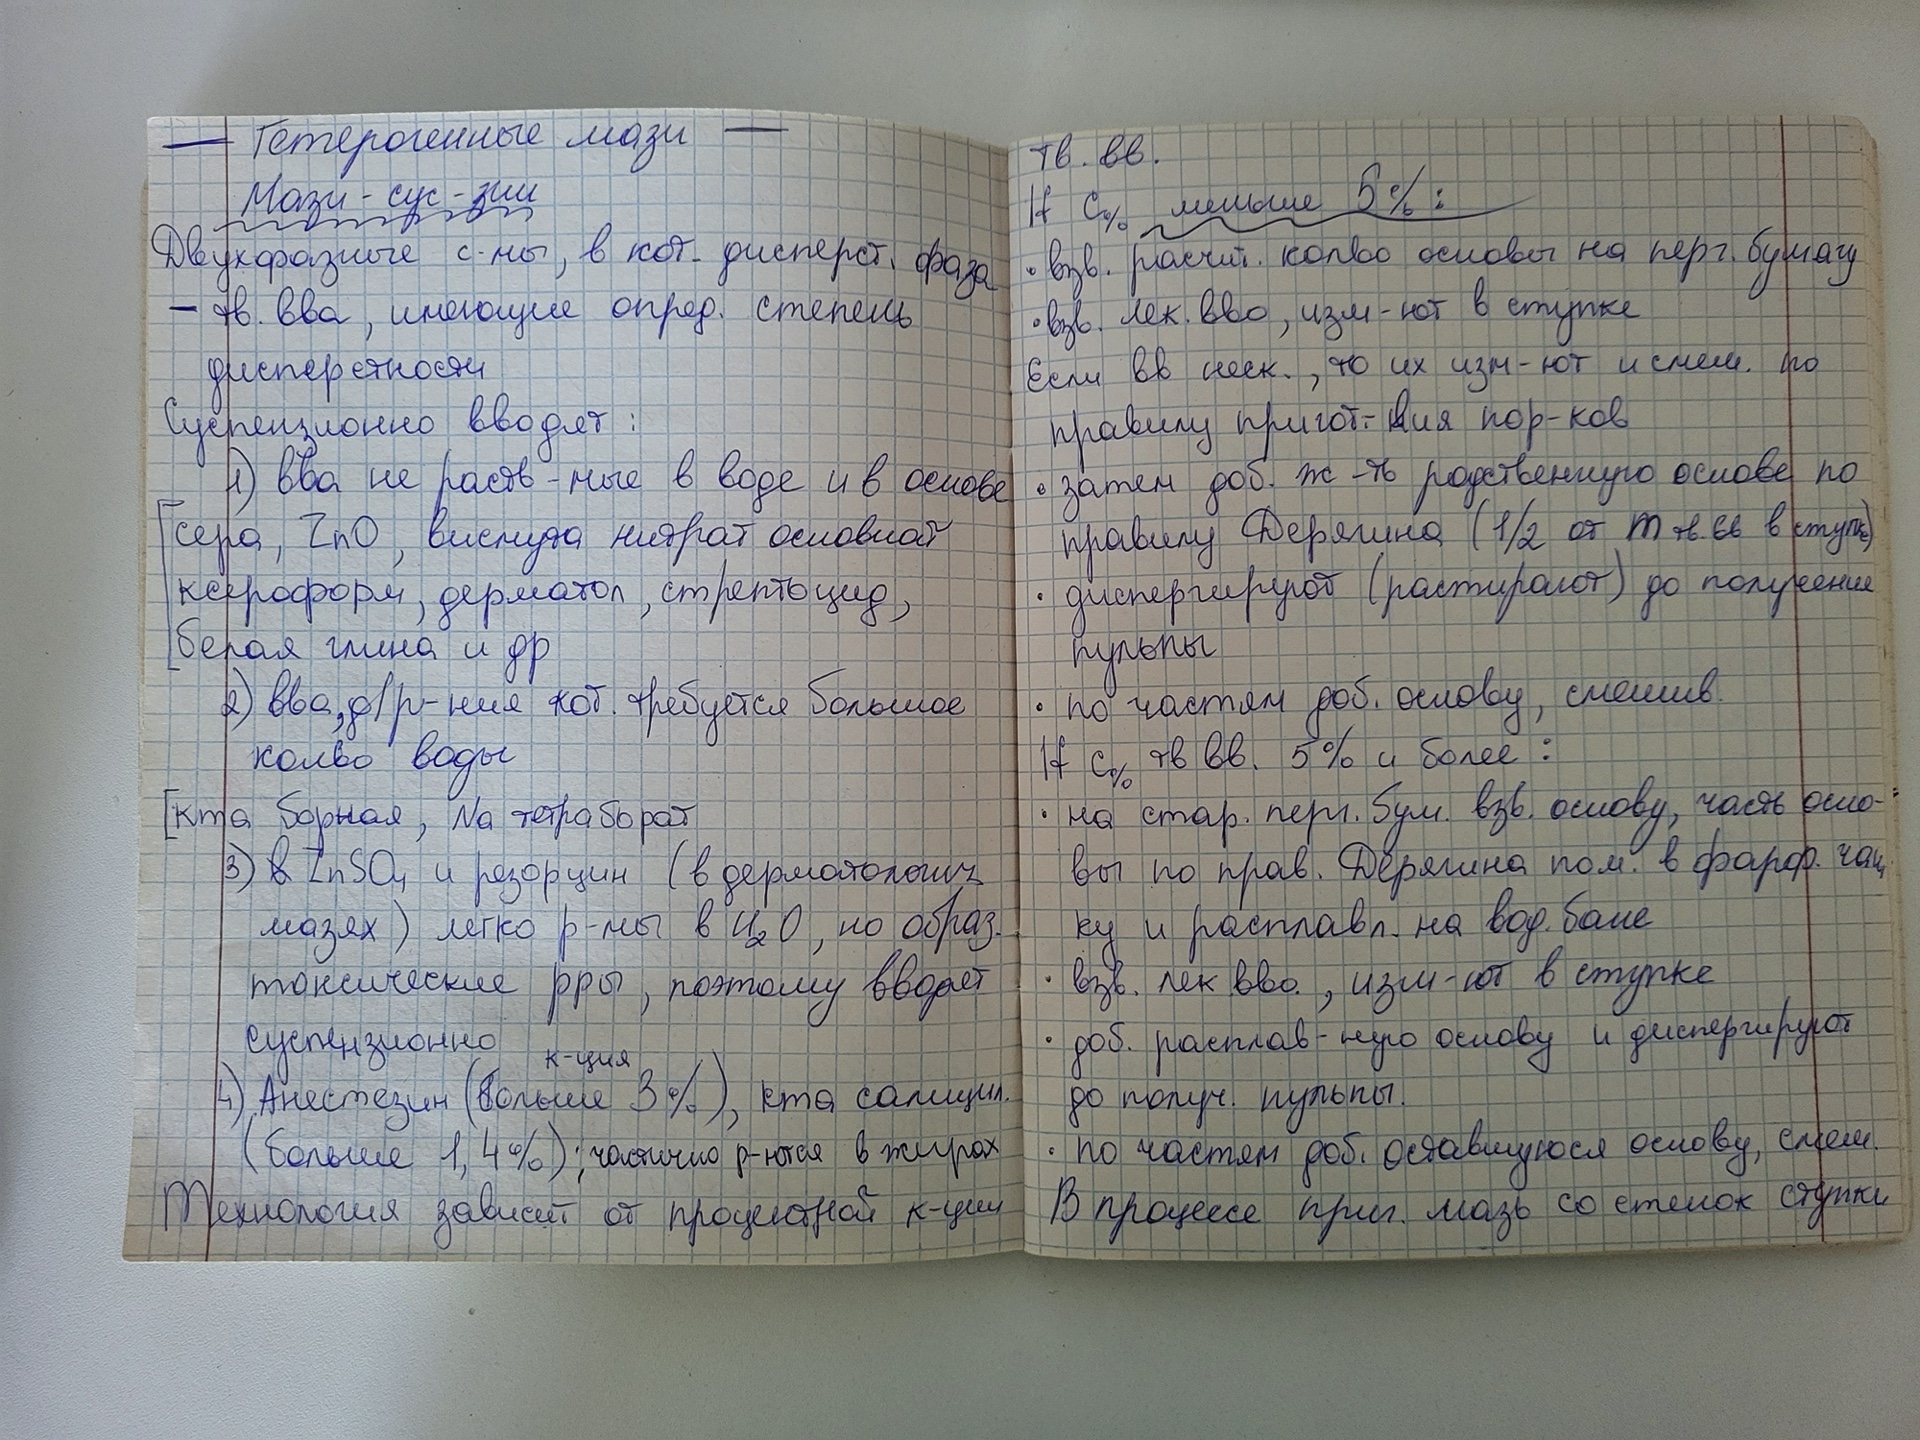 — Гетерогенные мази —
Мази-сус-зии
Двухфазные с-мы, в кот. дисперст. фаза
— тв. вва, имеющие опред. степень
дисперстности
Суспензионно вводят:
1) вва не раств-мые в воде и в основе
[сера, ZnO, висмута нитрат основной
ксероформ, дерматол, стрептоцид,
белая глина и др
2) вва, д/р-ния кот. требуется большое
колво воды
[кта борная, Na тетраборат
3) в ZnSO4 и резорцин (в дерматологич
мазях) легко р-мы в H2O, но образ.
токсические рры, поэтому вводят
суспензионно
к-ция
4) Анестезин (больше 3%), кта салицил.
(больше 1,4%); частично р-ются в жирах
Технология зависит от процентной к-ции
тв. вв.
If C% меньше 5%:
• взв. расчит. колво основы на перг. бумагу
• взв. лек. вво, изм-ют в ступке
Если вв неск., то их изм-ют и смеш. по
правилу пригот-вия пор-ков
• затем доб. ж-ть родственную основе по
правилу Дерягина (1/2 от m тв.вв в ступк)
• диспергируют (растирают) до получения
пульпы
• по частям доб. основу, смешив.
If C% тв вв. 5% и более:
• на стар. перг. бум. взв. основу, часть осно-
вы по прав. Дерягина пом. в фарф. чаш
ку и расплавл. на вод. бане
• взв. лек вво., изм-ют в ступке
• доб. расплав-ную основу и диспергируют
до получ. пульпы.
• по частям доб. оставшуюся основу, смеш.
В процессе приг. мазь со стенок ступки